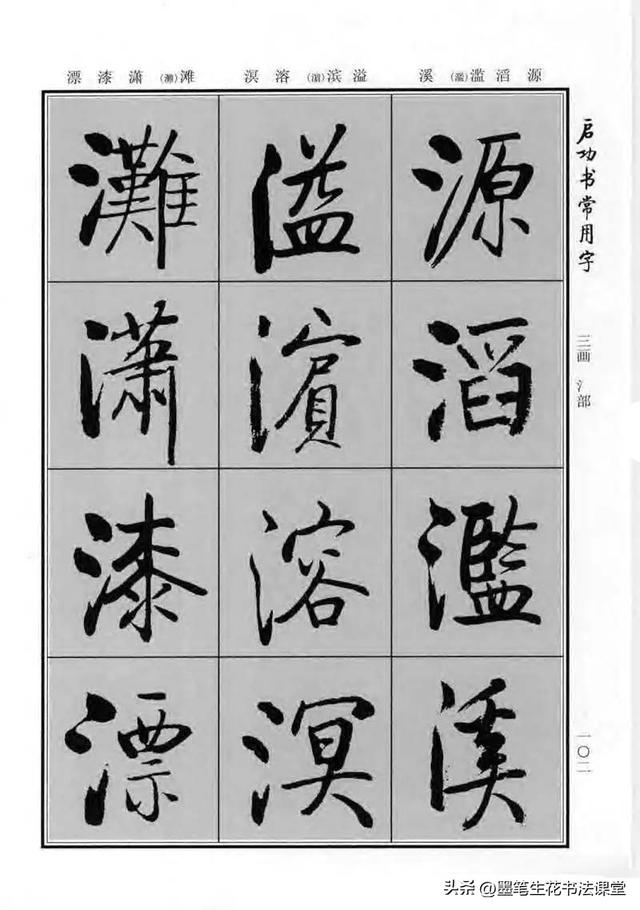 启功书常用字
三画 氵部
一〇二
源滔滥(濫)溪
溢滨(濱)溶溟
滩(灘)潇漆漂
源滔濫溪
溢濱溶溟
灘瀟漆漂
头条 @墨笔生花书法课堂